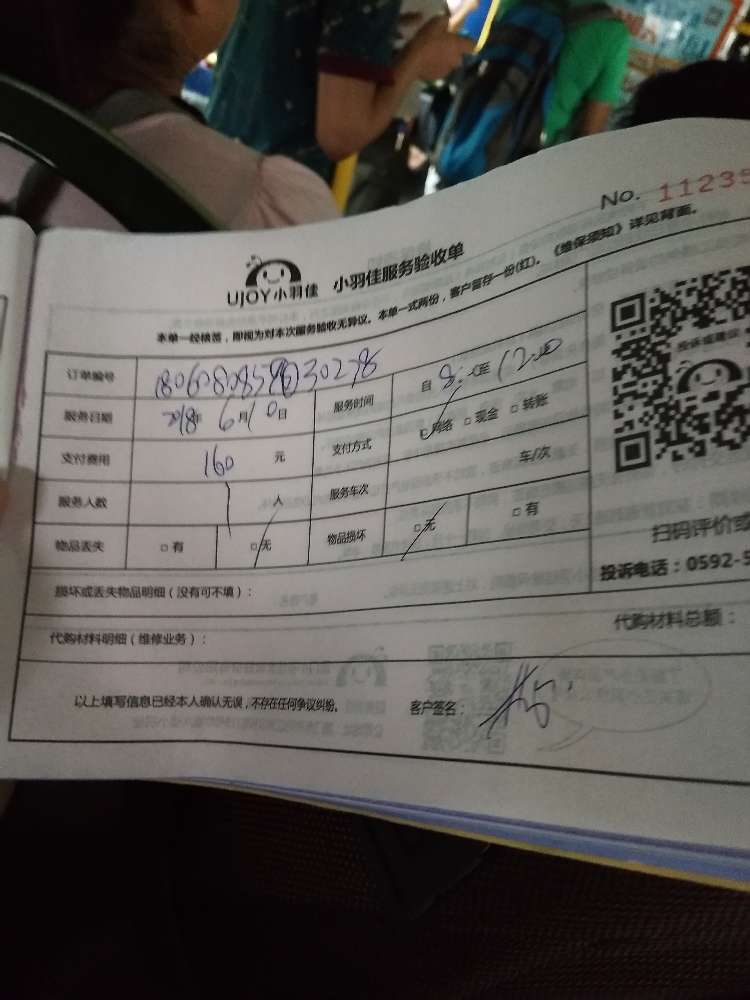 No. 11235
UJOY小羽佳 小羽佳服务验收单
本单一经核签，即视为对本次服务验收无异议。本单一式两份，客户留存一份(红)。《维保须知》详见背面。
订单编号
服务日期 2018年 6月10日 服务时间 自 8:00至 12:00
支付费用 160 元 支付方式 □网络 □现金 □转账
服务人数 1 人 服务车次 车/次
物品丢失 □有 □无 物品损坏 □无 □有
损坏或丢失物品明细（没有可不填）：
代购材料明细（维修业务）： 代购材料总额：
以上填写信息已经本人确认无误，不存在任何争议纠纷。 客户签名：
投诉或建议
扫码评价或
投诉电话：0592-5